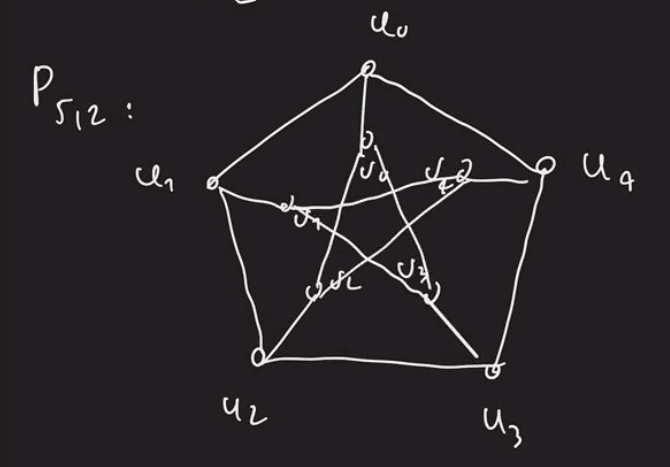 u₀
P₅,₂ :
u₁
u₄
v₀
v₄
v₁
v₂
v₃
u₂
u₃